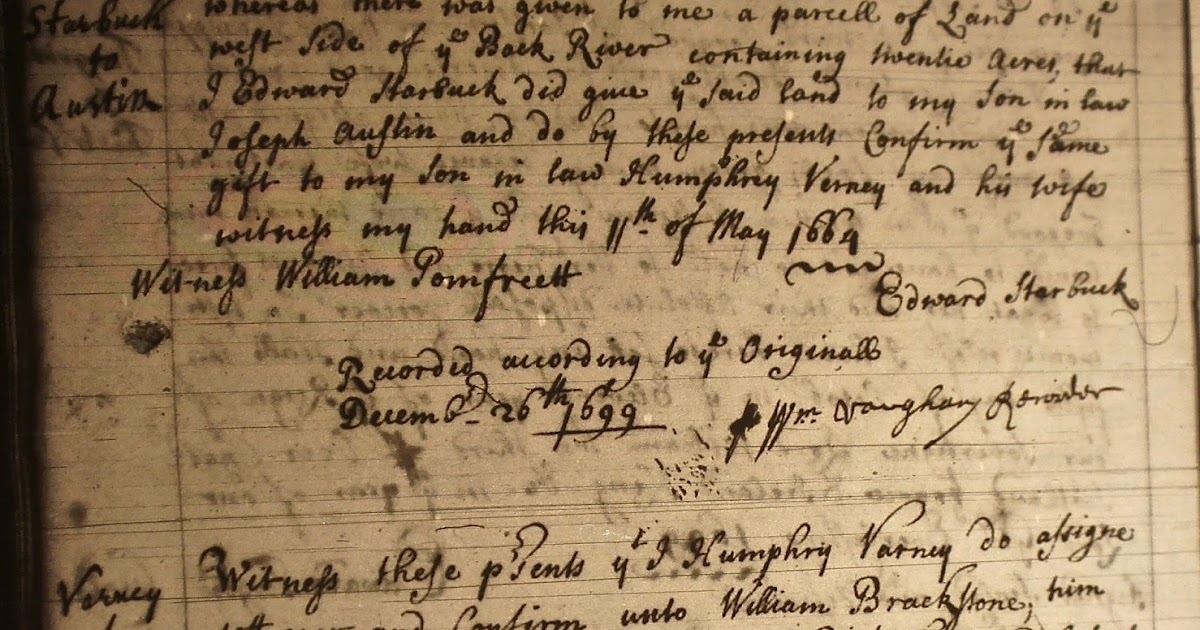 Starbuck
to
Austin
whereas there was given to me a parcell of Land on yͤ
west side of yͤ Back River containing twentie Acres, that
I Edward Starbuck did give yͤ said land to my Son in law
Joseph Austin and do by these presents Confirm yͤ same
gift to my Son in law Humphrey Verney and his wife
witness my hand this 11th of May 1664
Witness William Pomfrett
Edward Starbuck
Recorded according to yͤ Originall
Decembr 26th 1699
Wm Vaughan Recorder
Varney
Witness these prsents yt I Humphry Varney do assigne
and Confirm unto William Brackstone, him